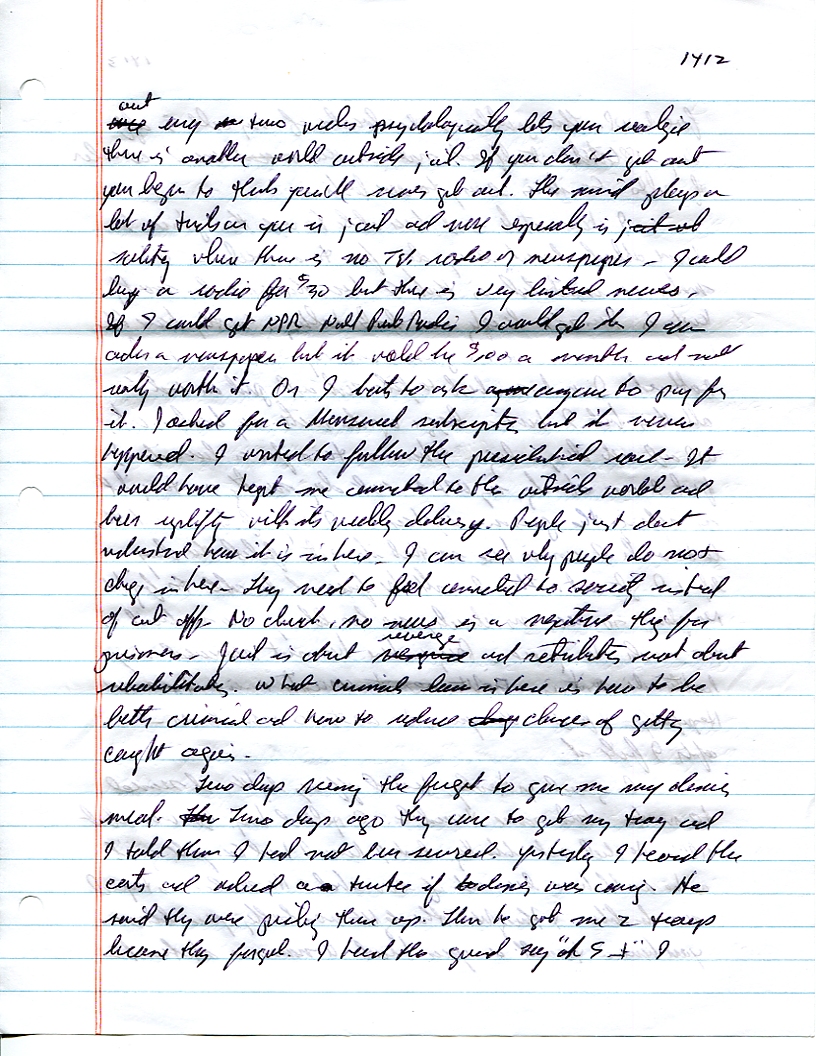 1412
out
every two weeks psychologically lets you realize
there is another world outside jail. If you don't get out
you begin to think you'll never get out. The mind plays a
lot of tricks on you in jail and more especially in
solitary when there is no TV radio or newspaper - I could
buy a radio for $30 but there is very limited news.
If I could get NPR Natl Public Radio I would get it. I can
order a newspaper but it would be $100 a month and not
really worth it. Or I hate to ask anyone to pay for
it. I asked for a subscription but it never
happened. I wanted to follow the presidential race. It
would have kept me connected to the outside world and
been uplifting with its weekly delivery. People just don't
understand how it is in here. I can see why people do not
change in here. They need to feel connected to society instead
of cut off. No doubt, no news is a negative thing for
revenge
prisoners. Jail is about and retribution not about
rehabilitation. What criminals learn in here is how to be
better criminal and how to reduce chance of getting
caught again.
Two days running they forgot to give me my dinner
meal. Two days ago they came to get my tray and
I told them I had not been served. Yesterday I heard the
carts and asked a trustee if dinner was coming. He
said they were picking them up. Then he got me 2 trays
because they forgot. I heard the guard say "oh S_t" I